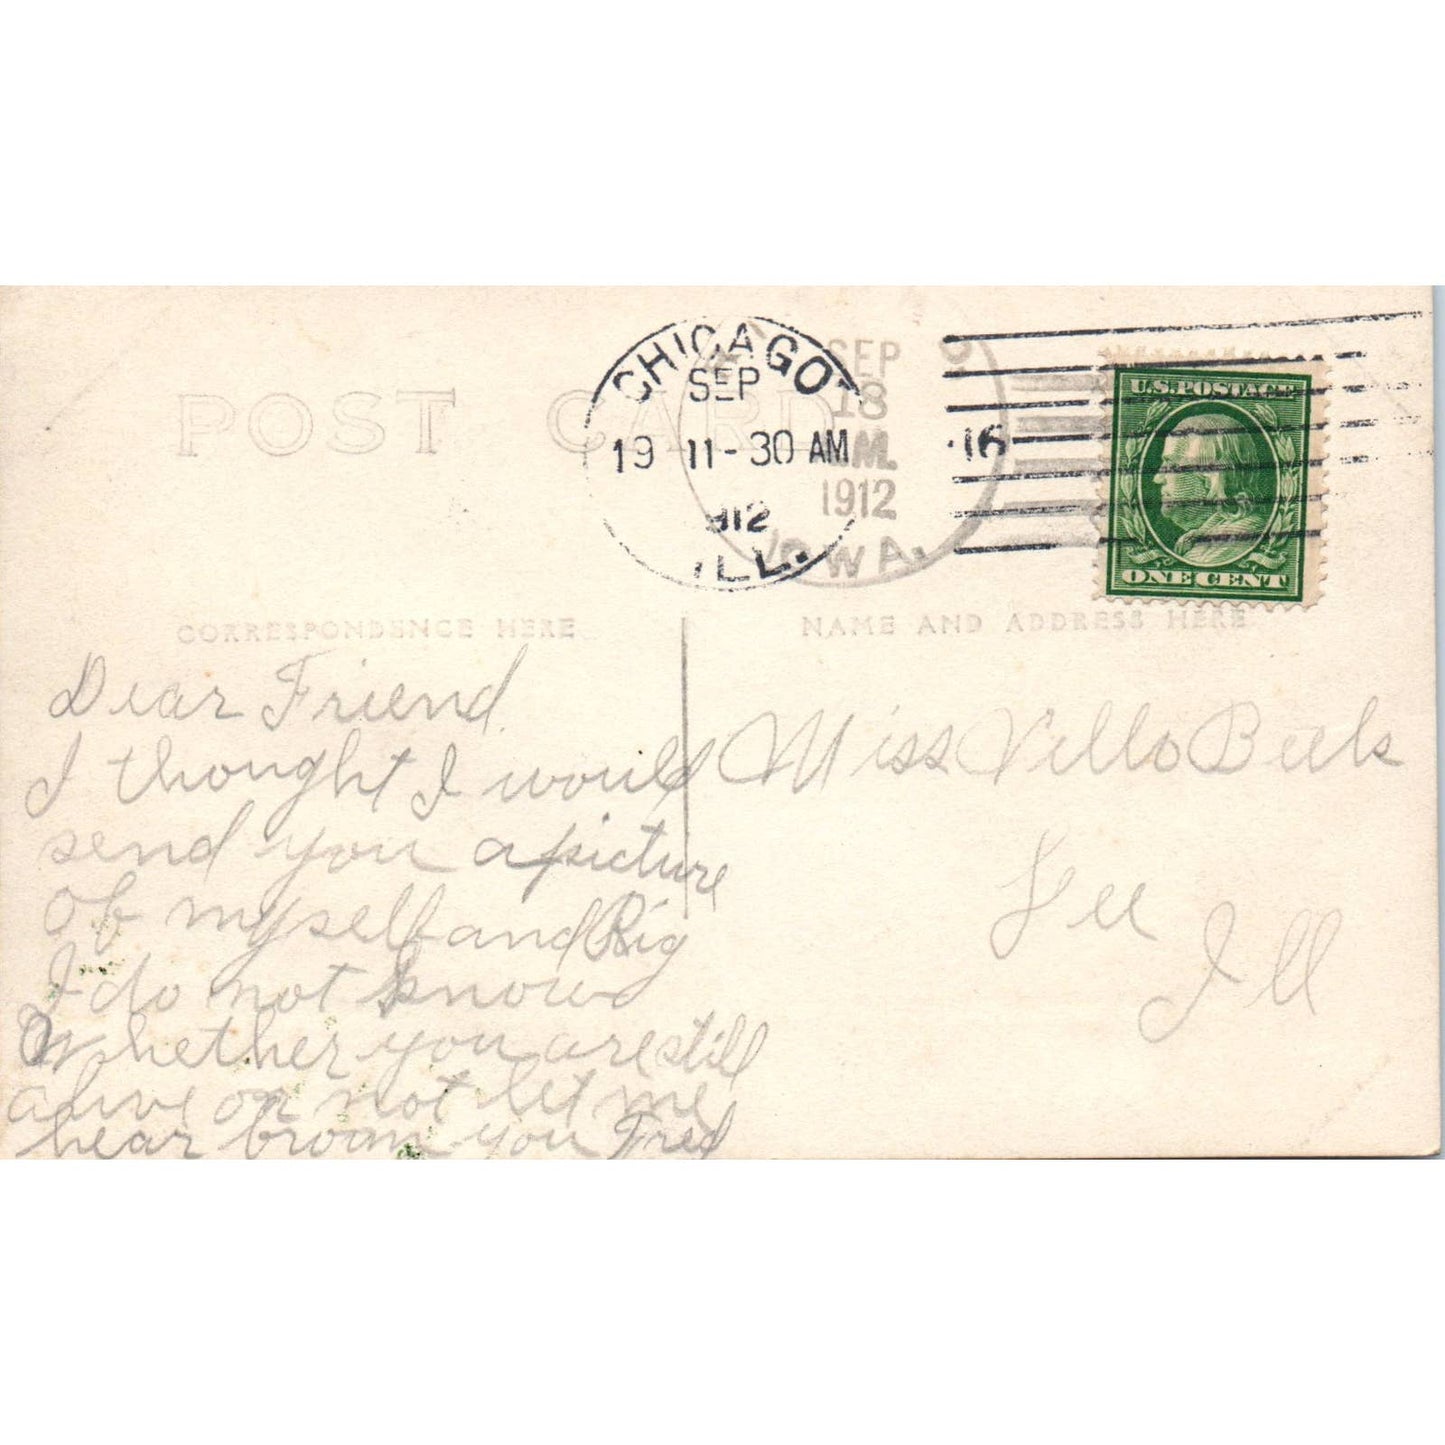 POST CARD
CHICAGO
SEP
19 11-30 AM
1912
ILL.
SEP
18
M.
1912
IOWA.
16
U.S.POSTAGE
ONE CENT
CORRESPONDENCE HERE
NAME AND ADDRESS HERE
Dear Friend
I thought I would
send you a picture
of myself and Rig
I do not know
whether you are still
alive or not let me
hear from you Fred
Miss
Lee
Ill